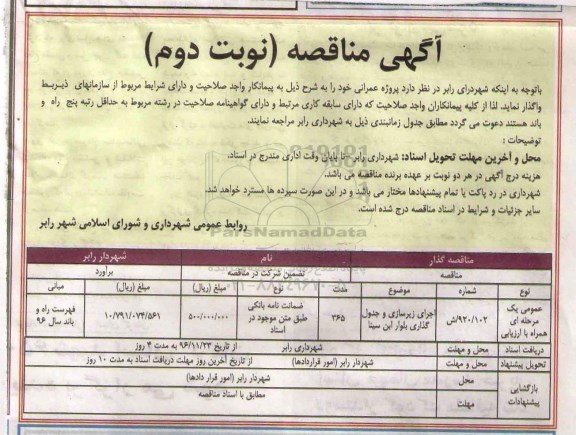 آگهی مناقصه (نوبت دوم)
باتوجه به اینکه شهرداری رابر در نظر دارد پروژه عمرانی خود را به شرح ذیل به پیمانکار واجد صلاحیت و دارای شرایط مربوط از سازمانهای ذیربط
واگذار نماید. لذا از کلیه پیمانکاران واجد صلاحیت که دارای سابقه کاری مرتبط و دارای گواهینامه صلاحیت در رشته مربوط به حداقل رتبه پنج راه و
باند هستند دعوت می گردد مطابق جدول زمانبندی ذیل به شهرداری رابر مراجعه نمایند.
توضیحات :
محل و آخرین مهلت تحویل اسناد: شهرداری رابر - تا پایان وقت اداری مندرج در اسناد.
هزینه درج آگهی در هر دو نوبت بر عهده برنده مناقصه می باشد.
شهرداری در رد یاکت یا تمام پیشنهادها مختار می باشد و در این صورت سپرده ها مسترد خواهد شد.
سایر جزئیات و شرایط در اسناد مناقصه درج شده است.
روابط عمومی شهرداری و شورای اسلامی شهر رابر
ParsNamadData
مناقصه گذار نام شهردار رابر
مناقصه تضمین شرکت در مناقصه برآورد
نوع شماره موضوع مدت نوع مبلغ (ریال) مبلغ (ریال) مبانی
عمومی یک مرحله ای همراه با ارزیابی ۹۲۰/۱۰۲/ش اجرای زیرسازی و جدول گذاری بلوار ابن سینا ۳۶۵ ضمانت نامه بانکی طبق متن موجود در اسناد ۵۰۰/۰۰۰/۰۰۰ ۱۰/۷۹۱/۰۷۴/۵۶۱ فهرست راه و باند سال ۹۶
دریافت اسناد محل و مهلت شهرداری رابر از تاریخ ۹۶/۱۱/۲۳ به مدت ۴ روز
تحویل پیشنهاد محل و مهلت شهردار رابر (امور قراردادها) از تاریخ آخرین روز مهلت دریافت اسناد به مدت ۱۰ روز
بازگشایی پیشنهادات محل شهردار رابر (امور قرار دادها)
مهلت مطابق با اسناد مناقصه